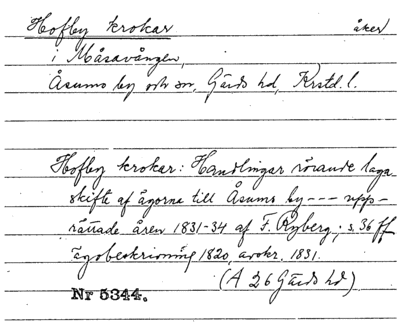 Hofby krokar åker
i Måsavången,
Åsums by och sn, Gärds hd, Krstd. l.
Hofby krokar: Handlingar rörande laga
skifte af ägorna till Åsums by --- upp-
rättade åren 1831-34 af F. Ryberg; s. 36 ff
Ägobeskrivning 1820, avskr. 1831.
(A 26 Gärds hd)
Nr 5344.